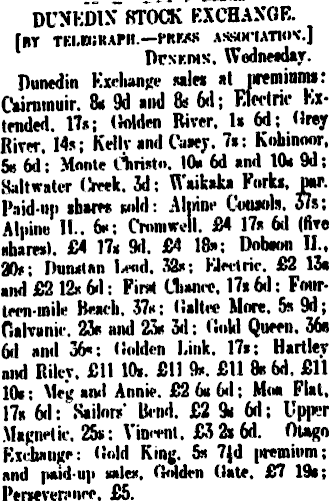 DUNEDIN STOCK EXCHANGE.
[BY TELEGRAPH.—PRESS ASSOCIATION.]
DUNEDIN, Wednesday.
Dunedin Exchange sales at premiums:
Cairnmuir, 8s 9d and 8s 6d; Electric Ex-
tended, 17s; Golden River, 1s 6d; Grey
River, 14s; Kelly and Casey, 7s: Kohinoor,
5s 6d; Monte Christo, 10s 6d and 10s 9d;
Saltwater Creek, 3d; Waikaka Forks, par.
Paid-up shares sold: Alpine Consols, 37s;
Alpine II., 6s; Cromwell, £4 17s 6d (five
shares), £4 17s 9d, £4 18s; Dobson II.,
20s; Dunstan Lead, 32s; Electric, £2 13s
and £2 12s 6d; First Chance, 17s 6d; Four-
teen-mile Beach, 37s; Galtee More, 5s 9d;
Galvanic, 23s and 23s 3d; Gold Queen, 36s
6d and 36s; Golden Link, 17s; Hartley
and Riley, £11 10s, £11 9s, £11 8s 6d, £11
10s; Meg and Annie, £2 6s 6d; Moa Flat,
17s 6d; Sailors' Bend, £2 9s 6d; Upper
Magnetic, 25s; Vincent, £3 2s 6d. Otago
Exchange: Gold King, 5s 7½d premium;
and paid-up sales, Golden Gate, £7 19s;
Perseverance, £5.